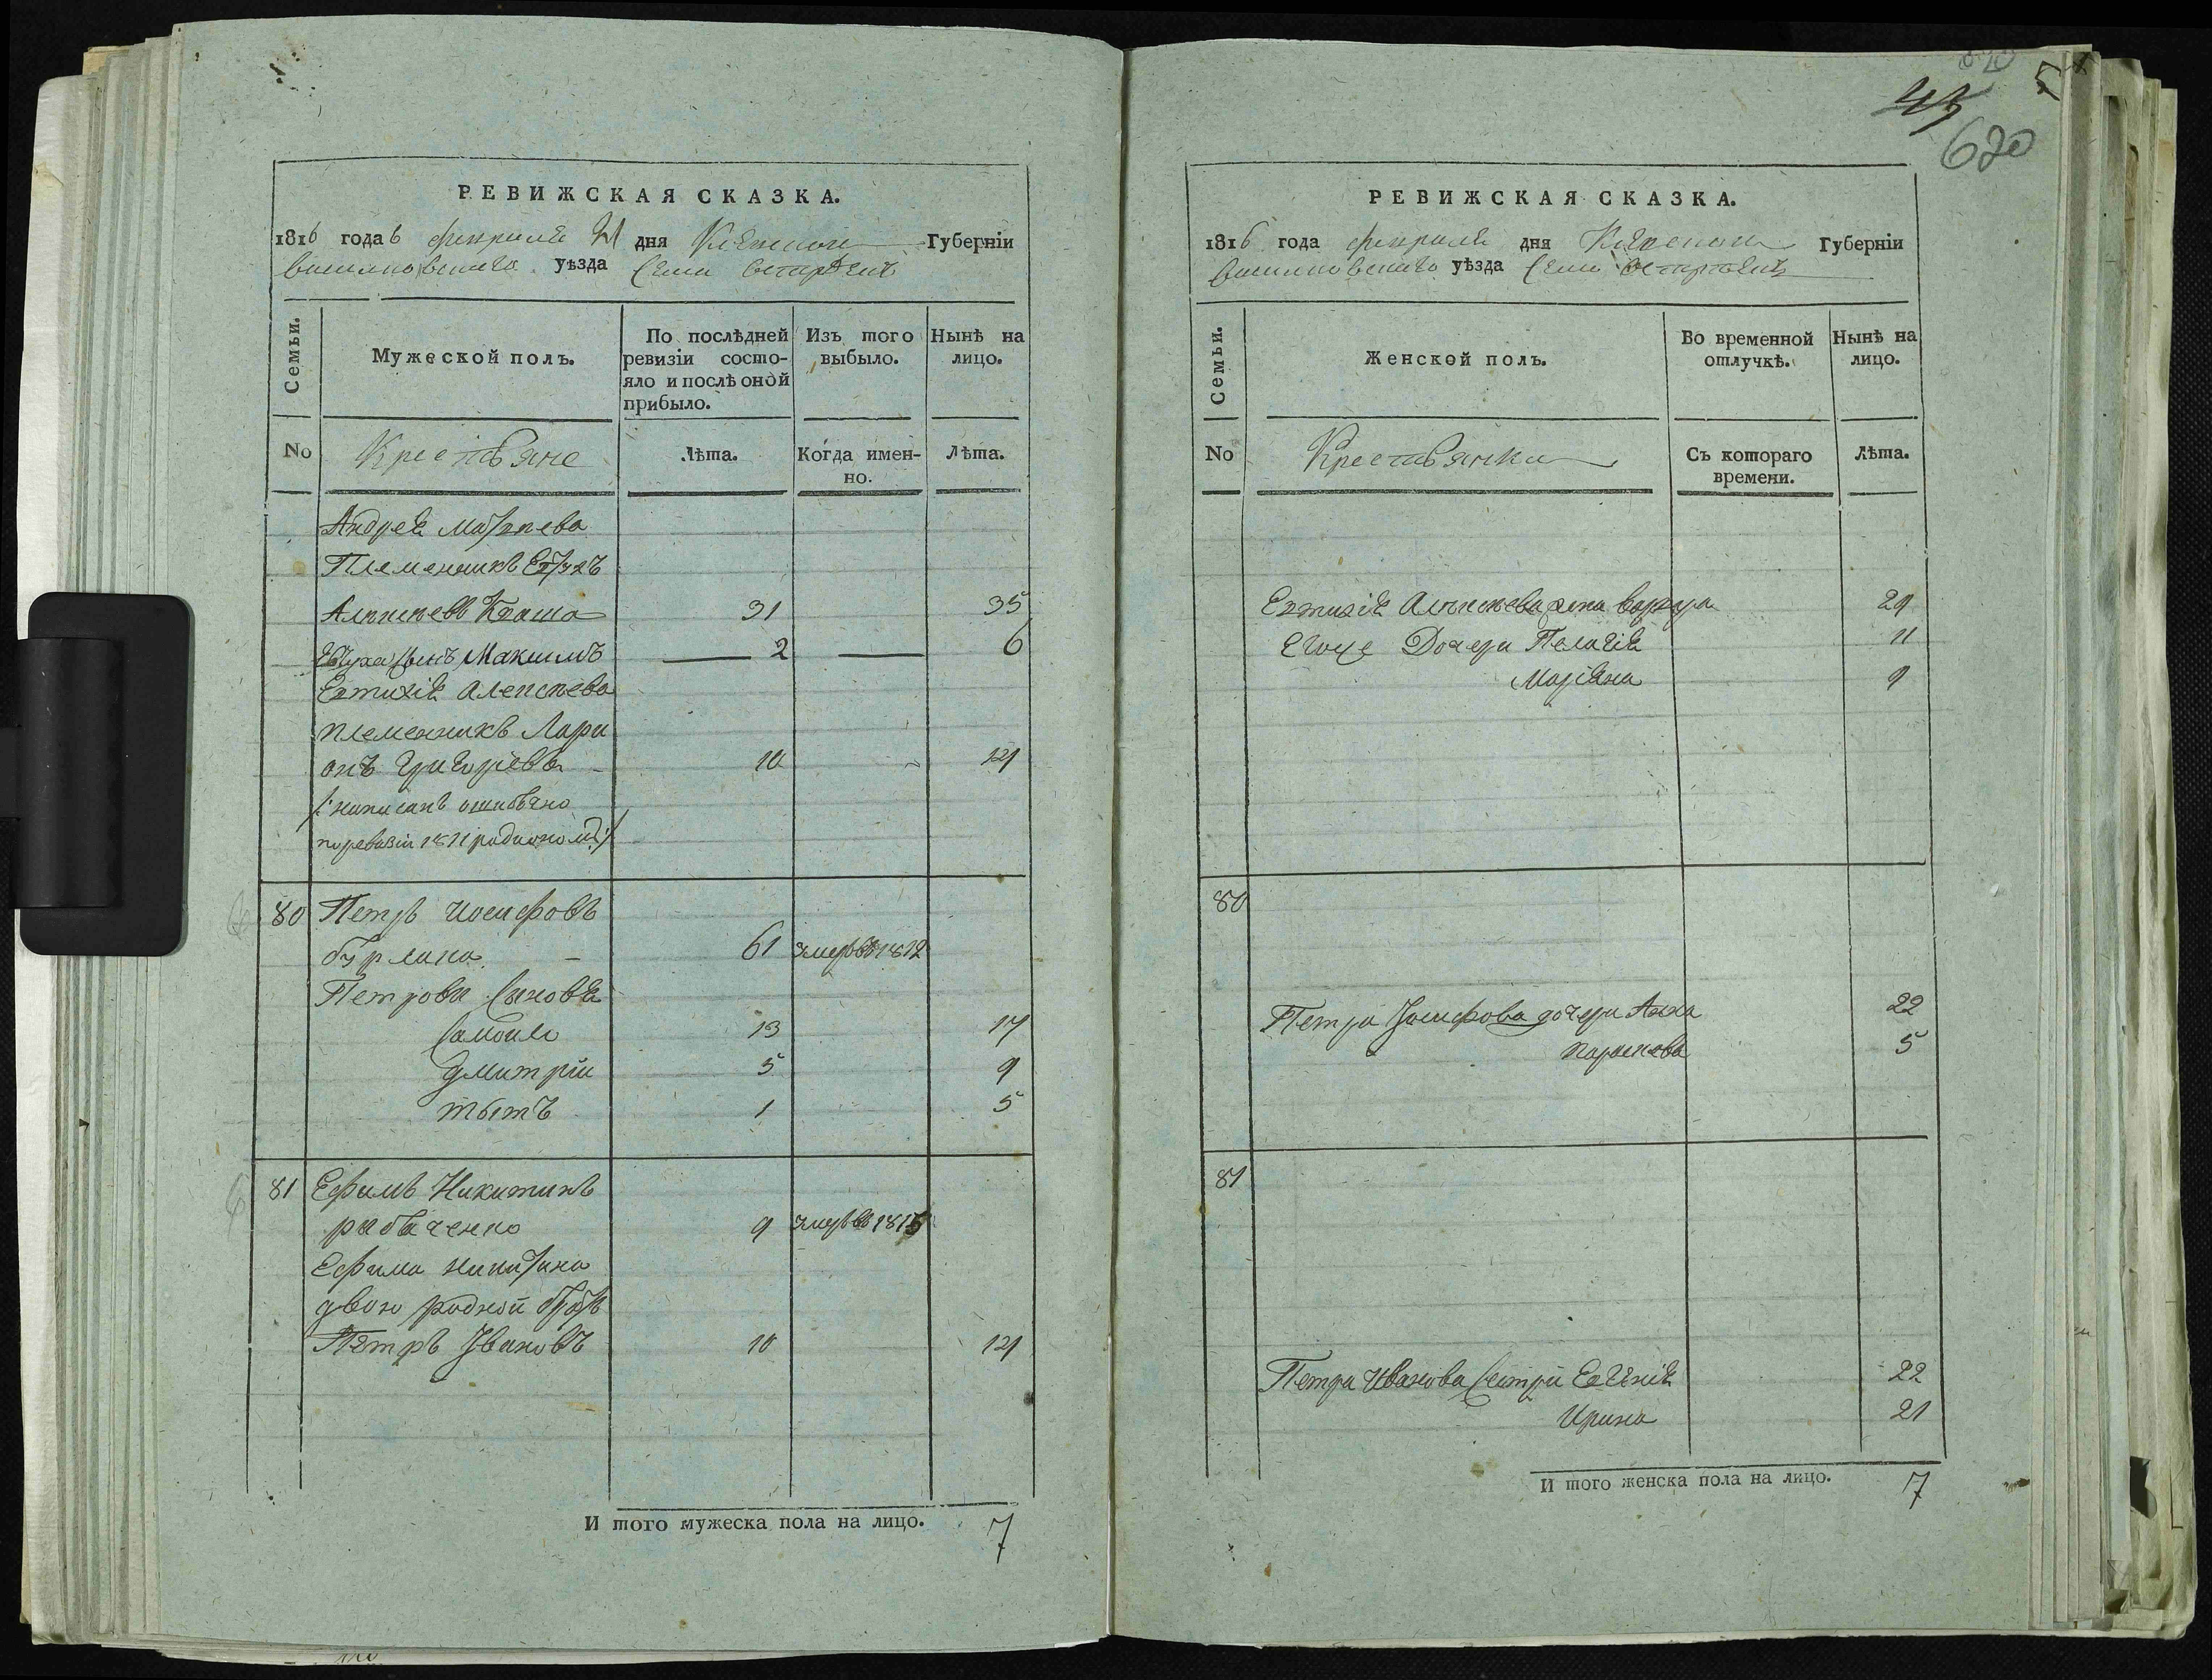 45
620
РЕВИЖСКАЯ СКАЗКА.
1816 года февраля 21 дня Кіевской Губерніи
васильковскаго уѣзда села
Семьи.
Мужеской полъ.
По послѣдней ревизіи состояло и послѣ оной прибыло.
Изъ того выбыло.
Нынѣ на лицо.
No
Крестьяне
Лѣта.
Когда именно.
Лѣта.
Андрея Матвѣева
Племенникъ
Алексѣевъ 31 35
сынъ Максимъ 2 6
Евтихія Алексѣева
племенникъ Лари
онъ Григорьевъ 10 14
/: написанъ ошибочно
поревизіи 1811 родіономъ :/
80 Петръ Иосифовъ
бурлака 61 умеръ въ 1812
Петрови Сыновья
Самойло 13 17
Дмитрій 5 9
титъ 1 5
81 Ефимъ Никитинъ
рабаченко 9 умеръ въ 1815
Ефима Никитина
двою родной братъ
Петръ Ивановъ 10 14
И того мужеска пола на лицо. 7
РЕВИЖСКАЯ СКАЗКА.
1816 года февраля дня Кіевской Губерніи
васильковскаго уѣзда села
Семьи.
Женской полъ.
Во временной отлучкѣ.
Нынѣ на лицо.
No
Крестьянки
Съ котораго времени.
Лѣта.
Евтихія Алексѣева жена варвара 29
Егоже Дочери Пелагія 11
Маріяна 9
80
Петра Іосифова дочери Анна 22
параскева 5
81
Петра Иванова Сестри Евгенія 22
Ирина 21
И того женска пола на лицо. 7